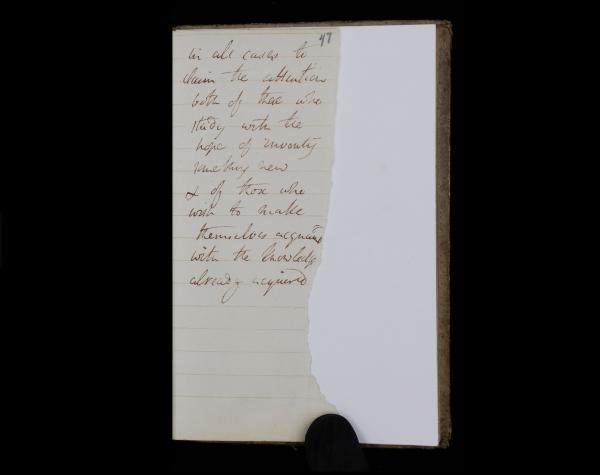 47
in all cases to
claim the attention
both of those who
study with the
hope of inventing
something new
& of those who
wish to make
themselves acquain
with the knowledge
already acquired